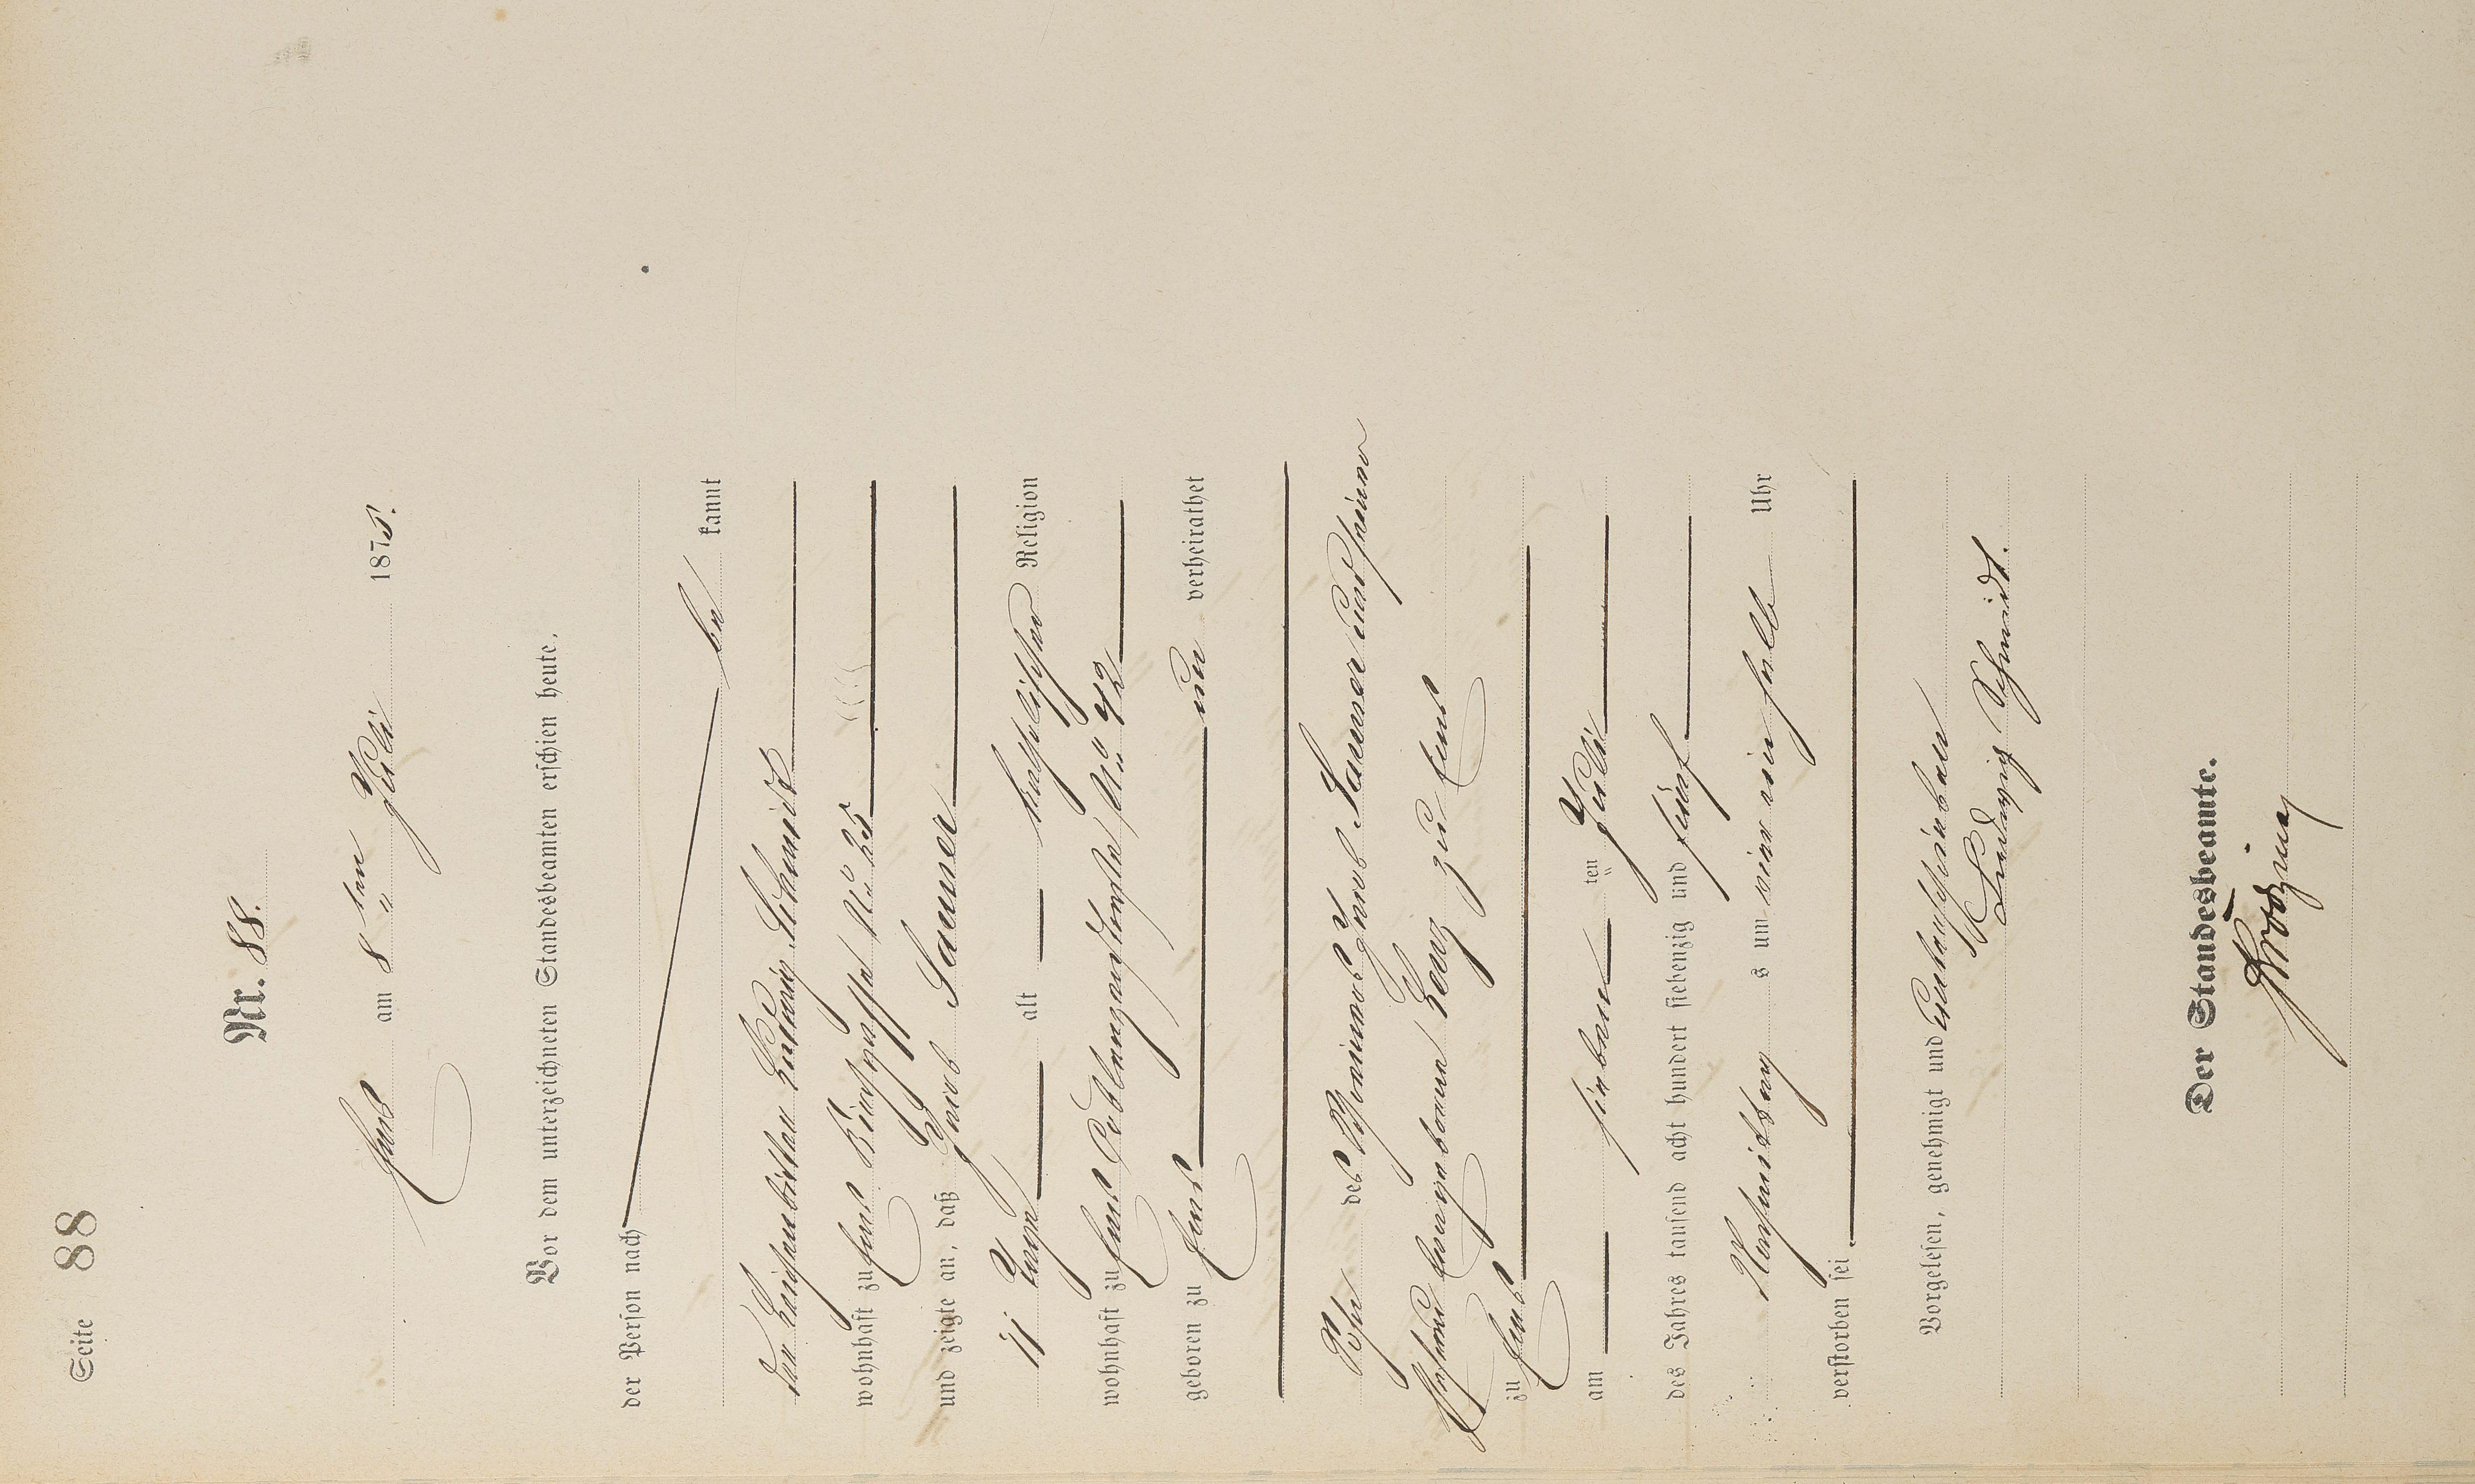 Seite 88
Nr. 88.
Ems am 8 ten Juli 1875.
Vor dem unterzeichneten Standesbeamten erschien heute,
der Person nach
be kannt
der Leichenbitter Ludwig Schmidt
wohnhaft zu Ems Kirchgasse No
und zeigte an, daß Jacob Sauner
11 Tage alt katholischer Religion
wohnhaft zu Ems Coblenzerstraße No 42
geboren zu Ems un verheirathet
Sohn des Jacob Sauner und seiner
Ehefrau geborene Lenz zu Ems
zu Ems
am sieben ten Juli
des Jahres tausend acht hundert siebenzig und fünf
Nachmittag s um ein halb Uhr
verstorben sei.
Vorgelesen, genehmigt und unterschrieben
Ludwig Schmidt.
Der Standesbeamte.